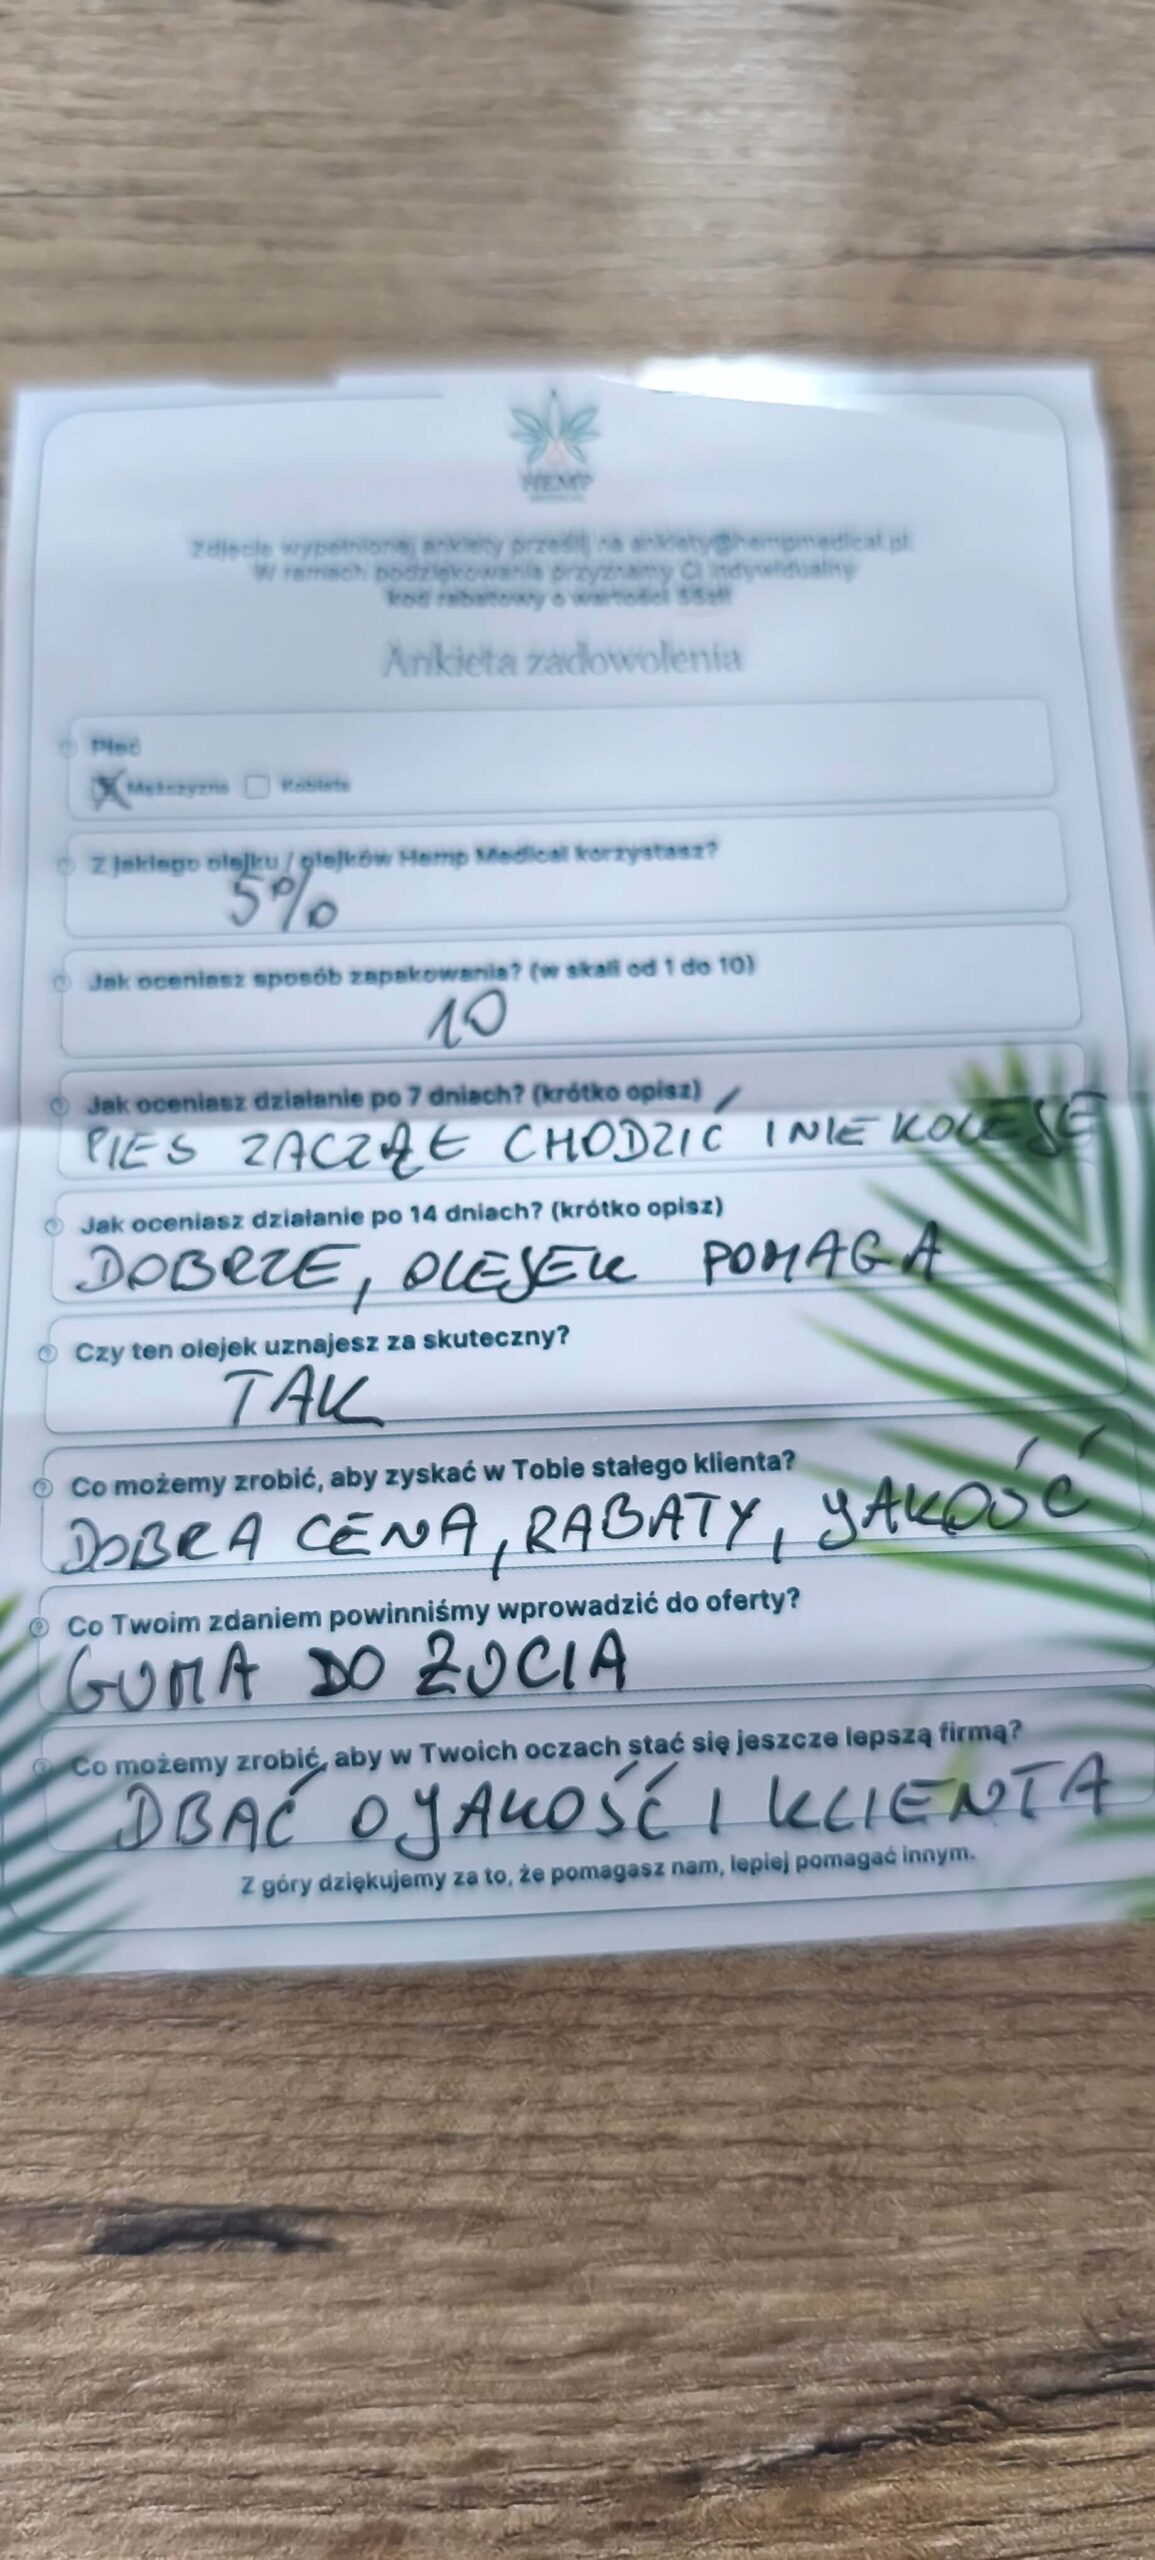 HEMP
Zdjęcie wypełnionej ankiety prześlij na ankiety@hempmedical.pl.
W ramach podziękowania przyznamy Ci indywidualny
kod rabatowy o wartości 55zł!
Ankieta zadowolenia
Płeć
Mężczyzna Kobieta
Z jakiego olejku / olejków Hemp Medical korzystasz?
5%
Jak oceniasz sposób zapakowania? (w skali od 1 do 10)
10
Jak oceniasz działanie po 7 dniach? (krótko opisz)
PIES ZACZĄŁ CHODZIĆ I NIE KOLEJE
Jak oceniasz działanie po 14 dniach? (krótko opisz)
DOBRZE, OLEJEK POMAGA
Czy ten olejek uznajesz za skuteczny?
TAK
Co możemy zrobić, aby zyskać w Tobie stałego klienta?
DOBRA CENA, RABATY, JAKOŚĆ
Co Twoim zdaniem powinniśmy wprowadzić do oferty?
GUMA DO ŻUCIA
Co możemy zrobić, aby w Twoich oczach stać się jeszcze lepszą firmą?
DBAĆ O JAKOŚĆ I KLIENTA
Z góry dziękujemy za to, że pomagasz nam, lepiej pomagać innym.